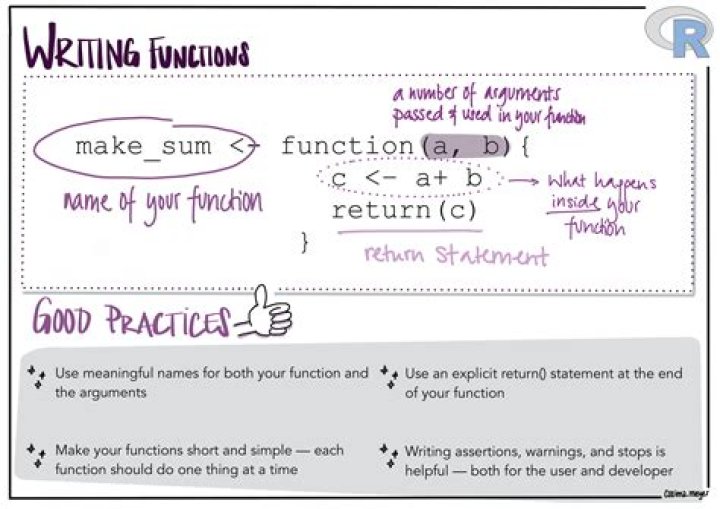 WRITING FUNCTIONS
R
a number of arguments
passed & used in your function
make_sum <- function(a, b){
c <- a+ b
return(c)
}
name of your function
what happens
inside your
function
return statement
GOOD PRACTICES
Use meaningful names for both your function and
the arguments
Use an explicit return() statement at the end
of your function
Make your functions short and simple — each
function should do one thing at a time
Writing assertions, warnings, and stops is
helpful — both for the user and developer
Cosima Meyer